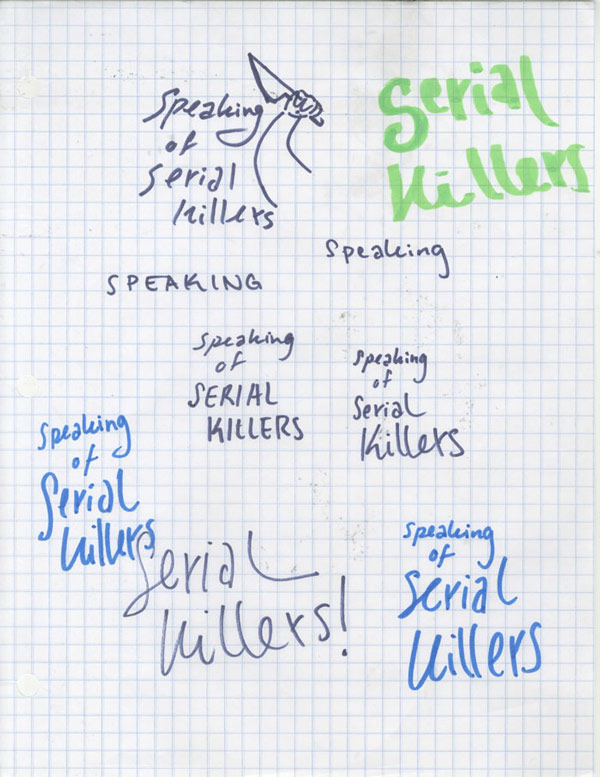 Speaking
of
Serial
killers
Serial
Killers
Speaking
SPEAKING
Speaking
of
SERIAL
KILLERS
Speaking
of
Serial
Killers
Speaking
of
Serial
Killers
Serial
Killers!
Speaking
of
Serial
Killers